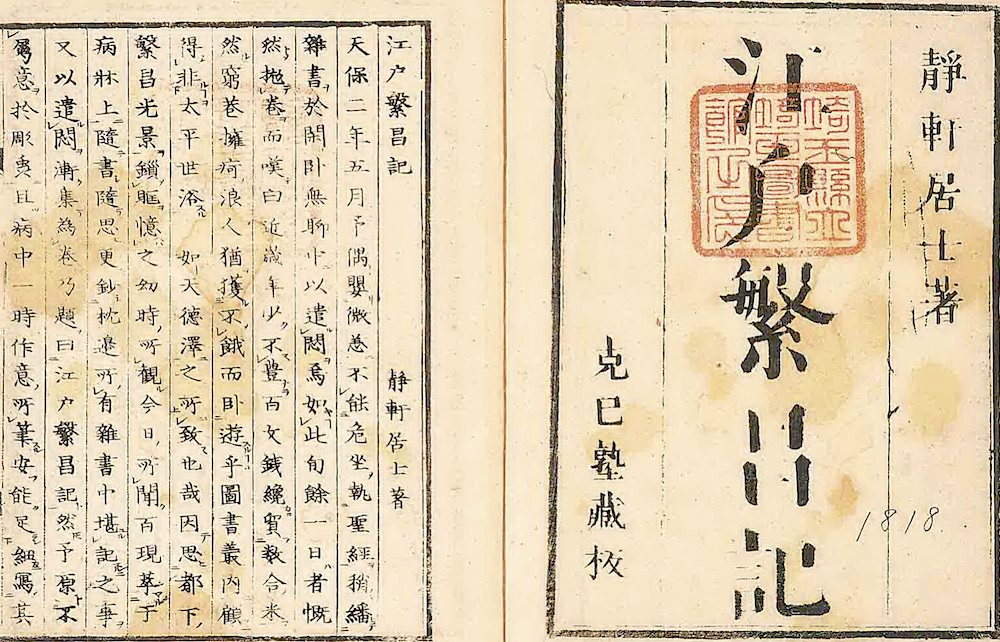 靜軒居士著
江户繁昌記
克己塾藏板
1818.
江户繁昌記
靜軒居士著
天保二年五月予偶嬰微恙不能危坐執聖經稍繙
雜書於閑臥無聊中以遣悶焉如此旬餘一日者慨
然拋卷而嘆曰近歲年少不豊百文錢纔貿數合米
然窮巷擁疴浪人猶獲不餓而臥遊乎圖書叢內顧
得非太平世俗 如天德澤之所致也哉因思都下
繁昌光景鎖眶憶之幼時所觀今日所聞百現萃于
病牀上隨書隨思更鈔枕邊所有雜書中堪記之事
又以遣悶漸集為卷乃題曰江户繁昌記然予原不
屬意於彫且病中一時作意所筆安能足細寫其